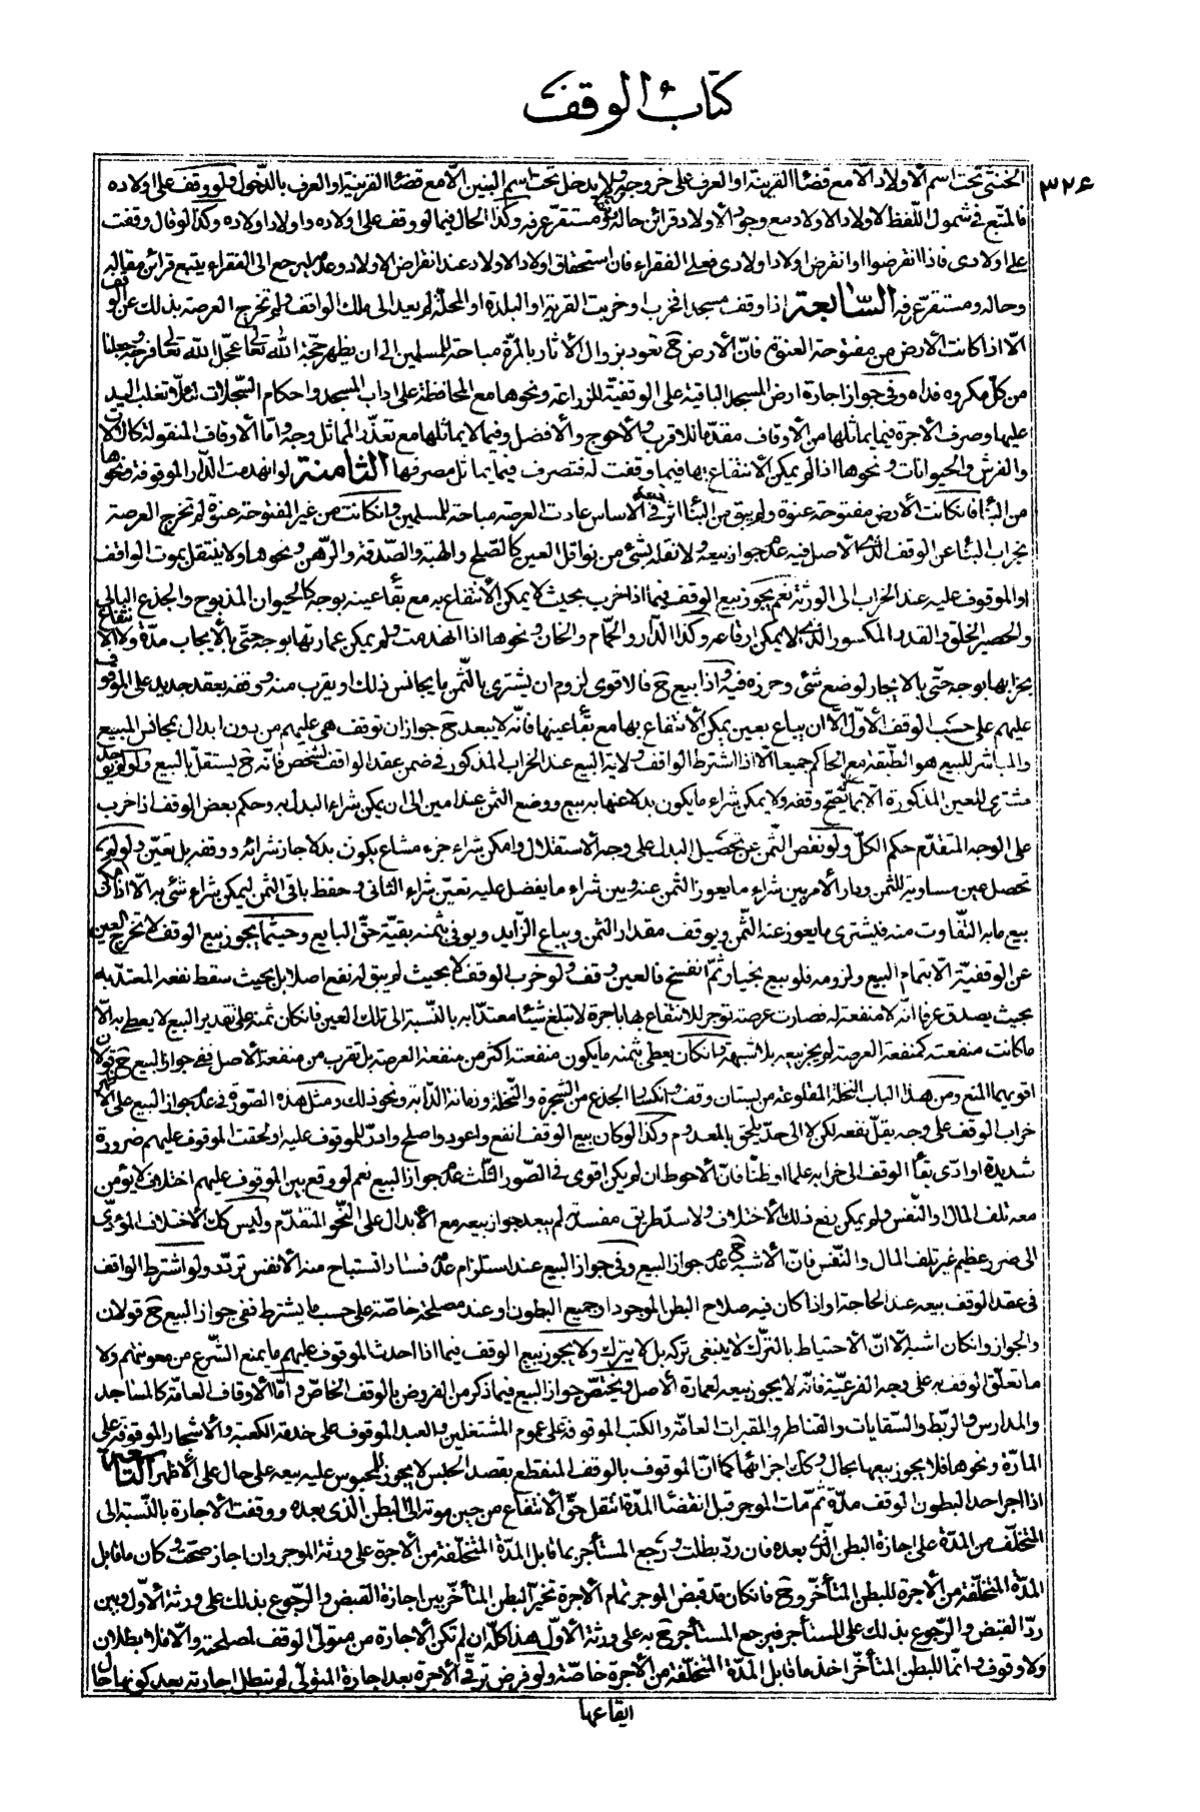 كتاب الوقف
٣٢۶
الخنثى تحت اسم الأولاد الّا مع قضاء القرينة او العرف على خروجه ولا يدخل تحت اسم البنين الّا مع قضاء القرينة او العرف بالدّخول ولو وقف على اولاده
فالمتّبع فى شمول اللّفظ لاولاد الاولاد مع وجود الأولاد قرائن حاله ومستقرّ عرفه وكذا الحال فيما لو وقف على اولاده واولاد اولاده وكذا لو قال وقفت
على اولادى فاذا انقرضوا او انقرض اولاد اولادى فعلى الفقراء فان استحقاق اولاد الاولاد عند انقراض الاولاد وعدمه ليرجع الى الفقراء يتبع قرائن مقاله
وحاله ومستقرّ عرفه السّابعة اذا وقف مسجدا فخرب او خربت القرية او البلدة او المحلّة لم يعد الى ملك الواقف ولم تخرج العرصة بذلك عن الوقف
الّا اذا كانت الأرض من مفتوحة العنوة فانّ الأرض ح تعود بزوال الأثار بالمرّة مباحة للمسلمين الى ان يظهر حجّة اللّه تعالى عجّل اللّه تعالى فرجه وجعلنا
من كلّ مكروه فداه وفى جواز اجارة ارض المسجد الباقية على الوقفيّة للزراعة ونحوها مع المحافظة على اداب المسجد واحكام السّجلات لئلّا تغلب اليد
عليها وصرف الأجرة فيما يماثلها من الأوقاف مقدّما للاقرب والأحوج والأفضل وفيما لا يماثلها مع تعذّر المماثل وجه وامّا الأوقاف المنقولة كالألات
والفرش والحيوانات ونحوها اذا لم يمكن الأنتفاع بها فيما وقفت له فتصرف فيما يماثل مصرفها الثّامنة لو انهدمت الدّار الموقوفة ونحوها
من البناء فان كانت الأرض مفتوحة عنوة ولم يبق من البناء اثر فى الاساس عادت العرصة مباحة للمسلمين وان كانت من غير المفتوحة عنوة لم تخرج العرصة
بخراب البناء عن الوقف الّذى الاصل فيه عدم جواز بيعه ولا نقله بشئ من نواقل العين كالصّلح والهبة والصّدقة والرّهن ونحوها ولا ينتقل بموت الواقف
او الموقوف عليه عند الخراب الى الورثة نعم يجوز بيع الوقف فيما اذا خرب بحيث لا يمكن الأنتفاع به مع بقاء عينه بوجه كالحيوان المذبوح والجذع البالى
والحصير الخلق والقدر المكسور الّذى لا يمكن ارقاعه وكذا الدّار والحمّام والخان ونحوها اذا انهدمت ولم يمكن عمارتها بوجه حتّى بالأيجاب مدّة ولا الأنتفاع
بخرابها بوجه حتّى بالايجار لوضع شئ وحرزه فيه واذا بيع ح فالاقوى لزوم ان يشترى بالثّمن ما يجانس ذلك او يقرب منه ووقفه بعقد جديد على الموقوف
عليهم على حسب الوقف الأوّل الّا ان يباع بعين يمكن الأنتفاع بها مع بقاء عينها فانّه لا يبعد ح جواز ان توقف هى عليهم من دون ابدال بمجانس المبيع
والمباشر للبيع هو الطّبقة مع الحاكم جميعا الّا اذا اشترط الواقف ولاية البيع عند الخراب المذكور فى ضمن عقد الواقف لشخص فانّه ح يستقلّ بالبيع ولو لم يوجد
مشترى للعين المذكورة الّا بما لا يصحّ وقفه ولا يمكن شراء ما يكون بدلا عنها به بيع ووضع الثمن عند امين الى ان يمكن شراء البدل به وحكم بعض الوقف اذا خرب
على الوجه المتقدّم حكم الكلّ ولو نقص الثّمن عن تحصيل البدل على وجه الأستقلال وامكن شراء جزء مشاع يكون بدلا جاز شرائه ووقفه بل تعيّن ولو لم
تحصل عين مساوية للثمن ودار الأمر بين شراء ما يعوز الثمن عنه وبين شراء ما يفضل عليه تعيّن شراء الثانى وحفظ باقى الثمن ليمكن شراء شئ به الّا اذا امكن
بيع ما به التّفاوت منه فيشترى ما يعوز عنه الثّمن ويوقف مقدار الثمن ويباع الزّايد ويوفى بثمنه بقيّة حقّ البايع وحيثما يجوز بيع الوقف لا تخرج العين
عن الوقفيّة الّا بتمام البيع ولزومه فلو بيع بخيار ثمّ انفسخ فالعين وقف ولو خرب الوقف لا بحيث لم يبق له نفع اصلا بل بحيث سقط نفعه المعتدّ به
بحيث يصدق عرفا انّه لا منفعة له فصارت عرصة توجر للانتفاع بها باجرة لا تبلغ شيئا معتدّا به بالنّسبة الى تلك العين فان كان ثمنه على تقدير البيع لا يعطى به الّا
ما كانت منفعته كمنفعة العرصة لم يجز بيعه بلا شبهة وان كان يعطى بثمنه ما يكون منفعته اكثر من منفعة العرصة بل تقرب من منفعة الأصل ففى جواز البيع ح قولان
اقويهما المنع ومن هذا الباب النخلة المقلوعة من بستان وقف وانكسار الجذع من الشجرة والنّخلة وزمانة الدّابة ونحو ذلك ومثل هذه الصّورة فى عدم جواز البيع على الأظهر
خراب الوقف على وجه يقلّ نفعه لكن لا الى حدّ يلحق بالمعدوم وكذا لو كان بيع الوقف انفع واعود واصلح وادرّ للموقوف عليه او لحقت الموقوف عليهم ضرورة
شديدة او ادّى بقاء الوقف الى خرابه علما او ظنّا فانّ الأحوط ان لم يكن اقوى فى الصّور الثّلث عدم جواز البيع نعم لو وقع بين الموقوف عليهم اختلاف لا يؤمن
معه تلف المال والنّفس ولم يمكن رفع ذلك الأختلاف ولا سدّ طريق مفسدته لم يبعد جواز بيعه مع الأبدال على النّحو المتقدّم وليس كلّ الأختلاف المؤدّى
الى ضرر عظيم غير تلف المال والنّفس فانّ الأشبه ح عدم جواز البيع وفى جواز البيع عند استلزام عدمه فسادا تستباح منه الأنفس تردّد ولو اشترط الواقف
فى عقد الوقف بيعه عند الحاجة او اذا كان فيه صلاح البطن الموجود او جميع البطون او عند مصلحة خاصّة على حسب ما يشترط ففى جواز البيع ح قولان
والجواز وان كان اشبه الّا انّ الأحتياط بالتّرك لا ينبغى تركه بل لا يترك ولا يجوز بيع الوقف فيما اذا احدث الموقوف عليهم ما يمنع الشّرع من معونتهم ولا
ما تعلّق الوقف به على وجه الفرعيّة فانّه لا يجوز بيعه لعمارة الأصل ويختصّ جواز البيع فيما ذكر من الفروض بالوقف الخاصّ وامّا الأوقاف العامّة كالمساجد
والمدارس والربط والسّقايات والقناطر والمقبرات العامّة والكتب الموقوفة على عموم المشتغلين والعبد الموقوف على خدمة الكعبة والأشجار الموقوفة على
المارّة ونحوها فلا يجوز بيعها بحال وكذا اجزائها كما انّ الموقوف بالوقف المنقطع بقصد الحبس لا يجوز للمحبوس عليه بيعه على حال على الأظهر التّاسعة
اذا اجر احد البطون الوقف مدّة ثمّ مات الموجر قبل انقضاء المدّة انتقل حقّ الأنتفاع من حين موته الى البطن الذى بعده ووقفت الأجارة بالنّسبة الى
المتخلّف من المدّة على اجازة البطن الّذى بعده فان ردّ بطلت ورجع المستأجر بما قابل المدّة المتخلّفة من الأجرة على ورثة الموجر وان اجاز صحّت وكان ما قابل
المدّة المتخلّفة من الأجرة للبطن المتأخّر وح فان كان قد قبض الموجر تمام الأجرة تخيّر البطن المتأخّر بين اجازة القبض والرّجوع بذلك على ورثة الأوّل وبين
ردّ القبض والرّجوع بذلك على المستأجر فيرجع المستأجر ح به على ورثة الأوّل هذا كلّه ان لم تكن الأجارة من متولّى الوقف لمصلحته والّا فلا بطلان
ولا وقوف وانّما للبطن المتأخّر اخذ ما قابل المدّة المتخلّفة من الأجرة خاصّة ولو فرض ترقّى الأجرة بعد اجارة المتولّى لم تبطل اجارته بعد كونها حال
ايقاعها